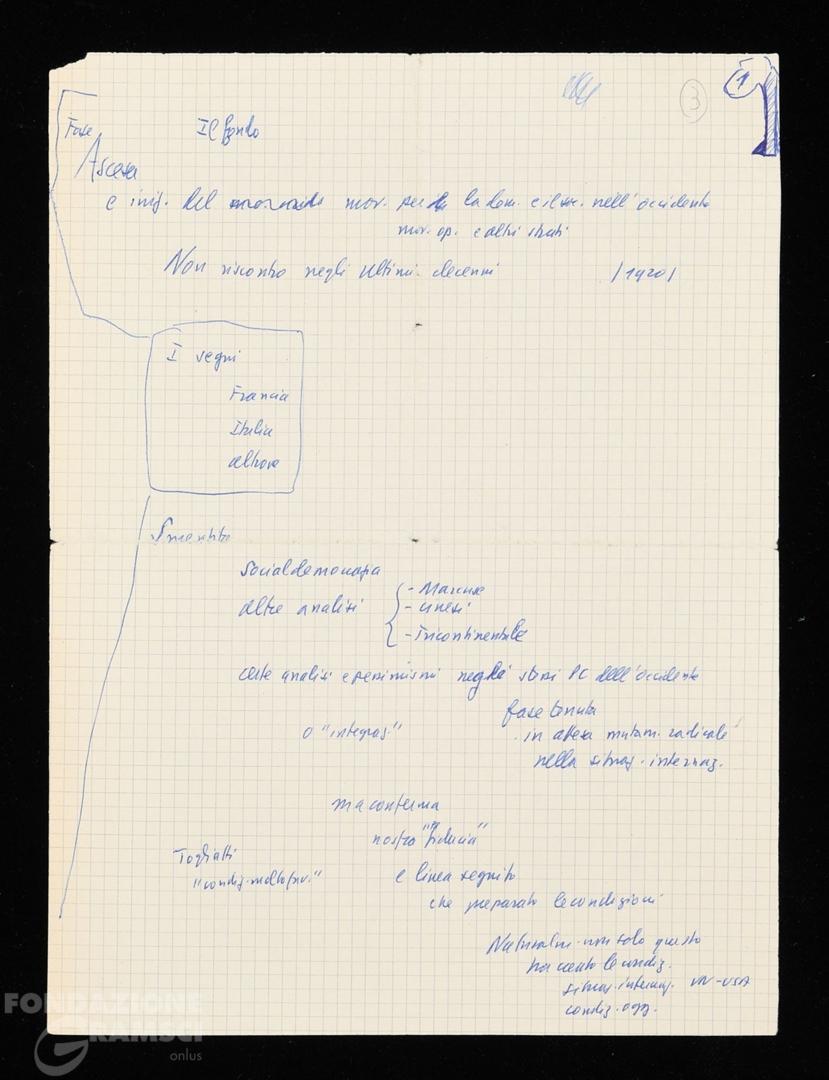 3
1
Fase
Il fondo
Ascesa
e inig. del mov. per la dem. e il soc. nell'occidente
mov. op. e altri strati
Non riscontro negli ultimi decenni /1920/
I segni
Francia
Italia
altrove
Smentite
Socialdemocrazia
altre analisi
- Marcuse
- cinesi
- Tricontinentale
certe analisi e pessimismi negli stessi PC dell'occidente
fase tenuta
o "integraz."
in attesa mutam. radicale
nella situaz. internaz.
ma conferma
nostra "fiducia"
Togliatti
"condiz. molto fav."
e linea seguita
che preparato le condizioni
Naturalm. non solo questo
ha creato le condiz.
situaz. internaz. VN-USA
condiz. ogg.
FONDAZIONE
GRAMSCI
onlus